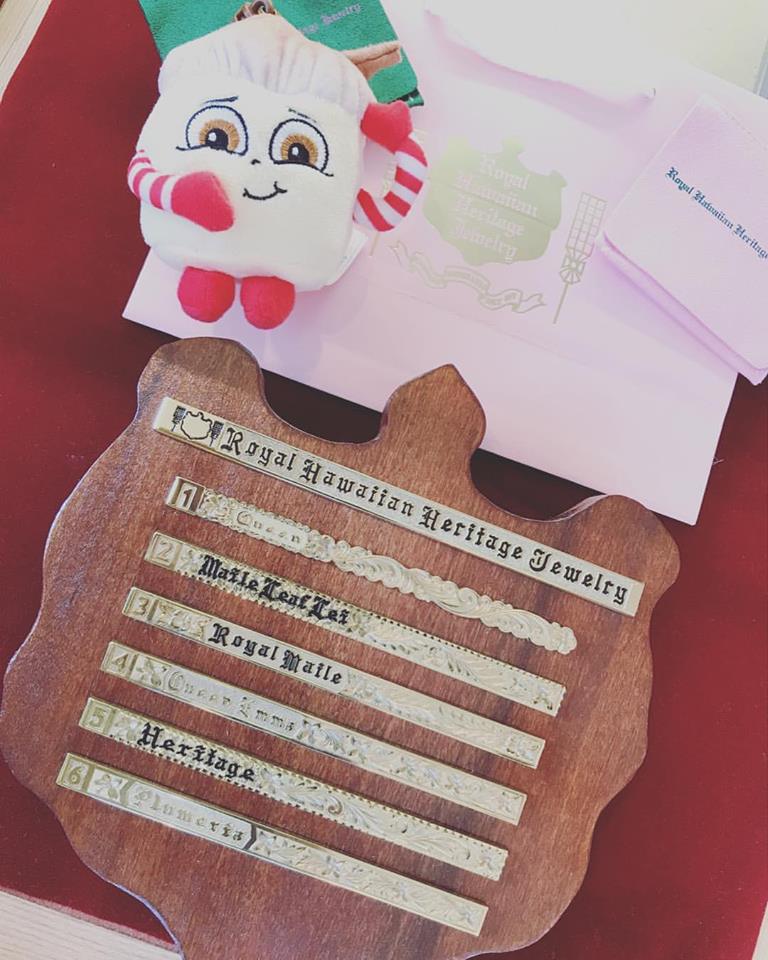 Jewelry
Royal
Hawaiian
Heritage
Jewelry
Royal Hawaiian Heritage
Royal Hawaiian Heritage Jewelry
1 Queen
2 Maile Leaf Lei
3 Royal Maile
4 Queen Emma
5 Heritage
6 Plumeria